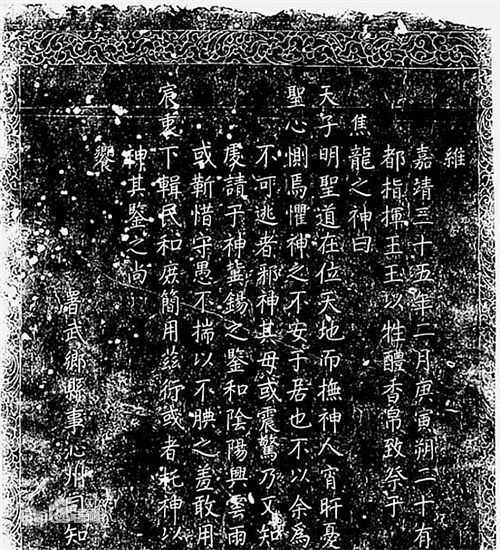 維
嘉靖三十五年二月庚寅朔二十有
都指揮王王以牲醴香帛致祭于
焦龍之神曰
天子明聖道在位天地而撫神人宵旰憂
聖心惻焉懼神之不安于居也不以余為
不可逃者邪神其毋或震驚乃又知
虔請于神冀錫之鑒和陰陽興雲雨
或靳惜守愚不揣以不腆之羞敢用
宸衷下輯民和庶簡用茲行或者托神以
神其鑒之尚
饗
署武鄉縣事沁州同知